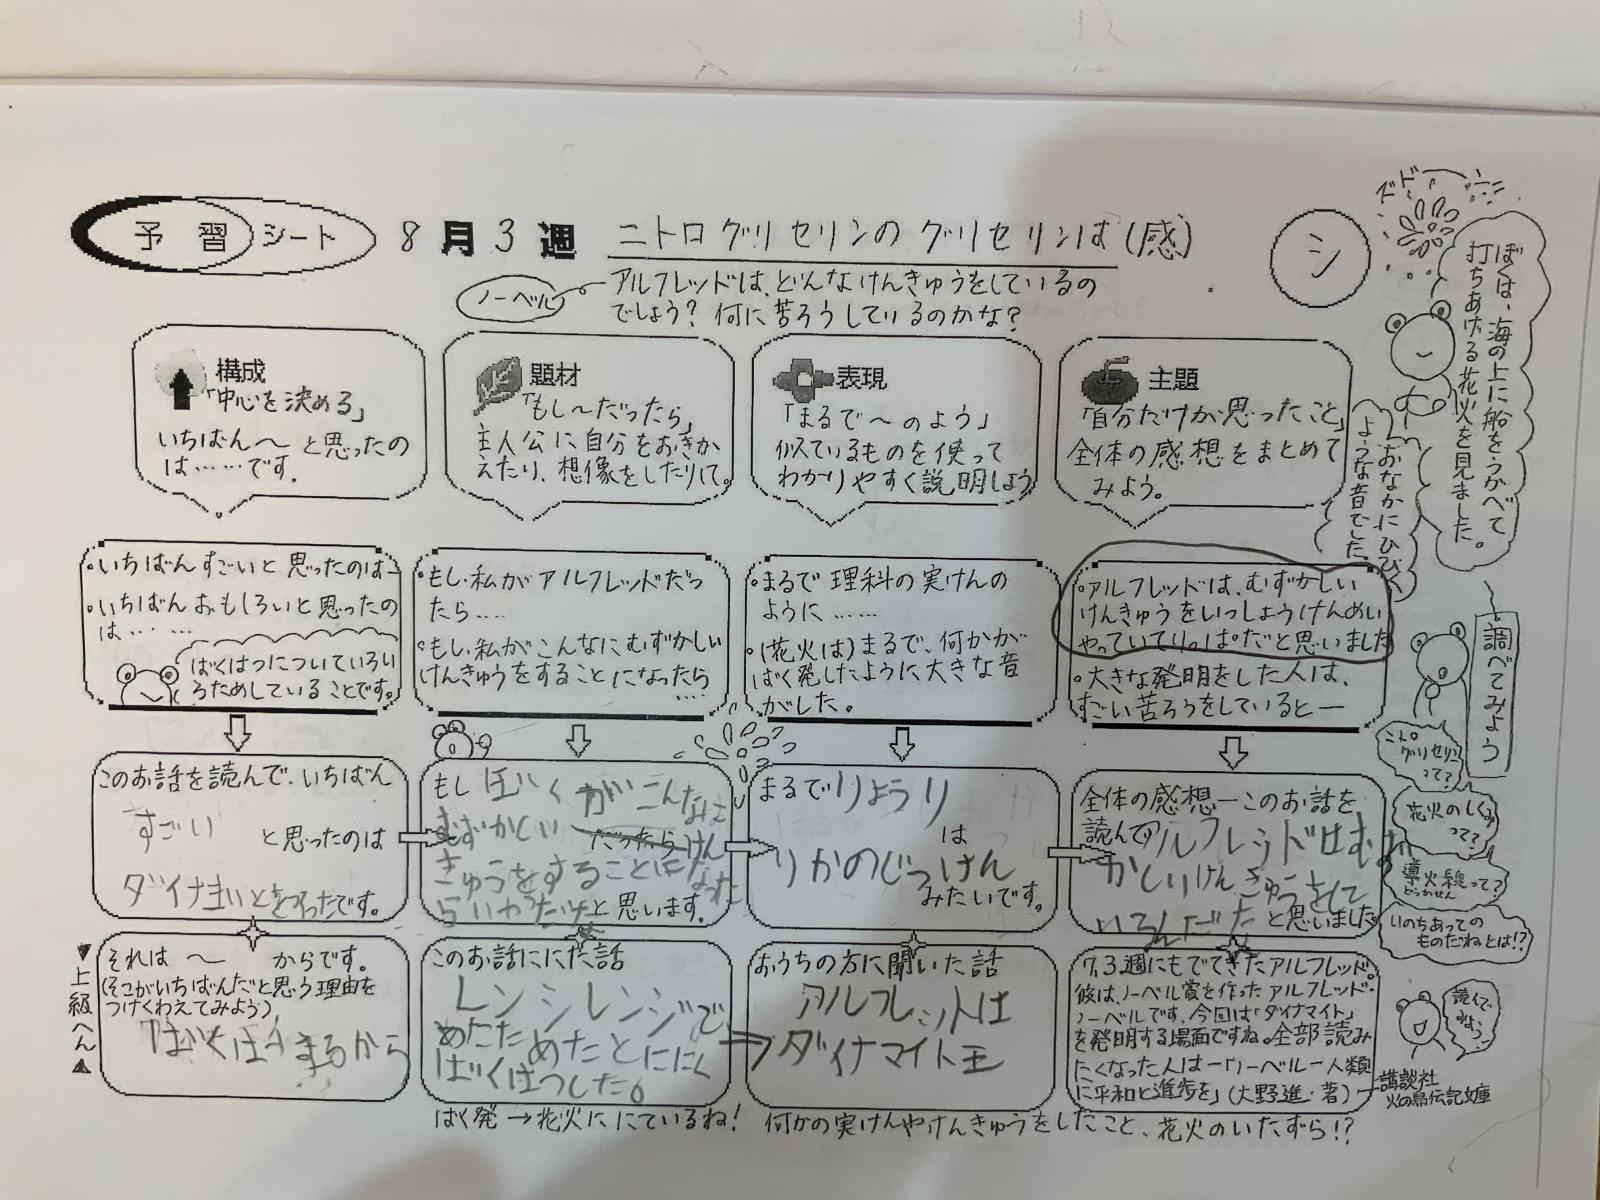 予習シート 8月3週 ニトログリセリンのグリセリンは(感)
シ
ノーベル
アルフレッドは、どんなけんきゅうをしているの
でしょう?何に苦ろうしているのかな?
ドド
ぼくは、海の上に船をうかべて
打ちあげる花火を見ました。
おなかにひびく
ような音でした。
構成
「中心を決める」
いちばん〜と思ったの
は……です。
題材
「もし〜だったら」
主人公に自分をおきか
えたり、想像をしたりして。
表現
「まるで〜のよう」
似ているものを使って
わかりやすく説明しよう
主題
「自分だけが思ったこと」
全体の感想をまとめて
みよう。
・いちばんすごいと思ったのは―
・いちばんおもしろいと思ったの
は……
ばくはつについていろい
ろためしていることです。
・もし私がアルフレッドだっ
たら……
・もし私がこんなにむずかしい
けんきゅうをすることになったら
……
・まるで理科の実けんの
ように……
・(花火は)まるで、何かが
ばく発したように大きな音
がした。
・アルフレッドは、むずかしい
けんきゅうをいっしょうけんめい
やっていてりっぱだと思いました
・大きな発明をした人は、
すごい苦ろうをしていると―
調べてみよう
ニトロ
グリセリン
って?
花火のしくみ
って?
導火線って?
どうかせん
いのちあっての
ものだねとは!?
このお話を読んで、いちばん
すごい と思ったのは
ダイナまいとをつくったです。
もしぼくがこんなに
むずかしい だったら けん
きゅうをすることになった
らいやだなと思います。
まるでりょうり
は
りかのじっけん
みたいです。
全体の感想―このお話を
読んでアルフレッドはむず
かしいけんきゅうをして
いるんだなと思いました
▼上級へん▲
それは 〜 からです。
(そこがいちばんだと思う理由を
つけくわえてみよう)
ばくはつするから
このお話ににた話
レンジレンジで
あたためたとににく
ばくはつした。
おうちの方に聞いた話
アルフレットは
ダイナマイト王
7.3週にもでてきたアルフレッド。
彼は、ノーベル賞を作ったアルフレッド・
ノーベルです。今回は「ダイナマイト」
を発明する場面ですね。全部読み
たくなった人は―「ノーベル―人類
に平和と進歩を」(大野進・著)
講談社
火の鳥伝記文庫
読んで
みよう
ばく発→花火ににているね! 何かの実けんやけんきゅうをしたこと、花火のいたずら!?